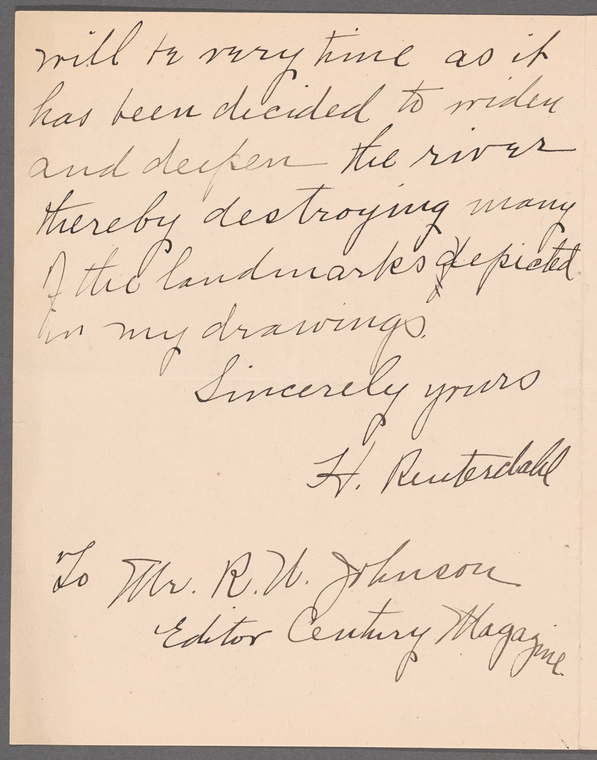 will be very time as it
has been decided to widen
and deepen the river
thereby destroying many
of the landmarks depicted
in my drawings.
Sincerely yours
H. Reuterdahl
To Mr. R. U. Johnson
Editor Century Magazine.